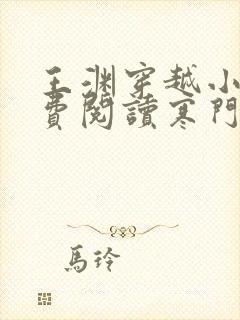 王渊穿越小
費閱讀寒門
馬玲